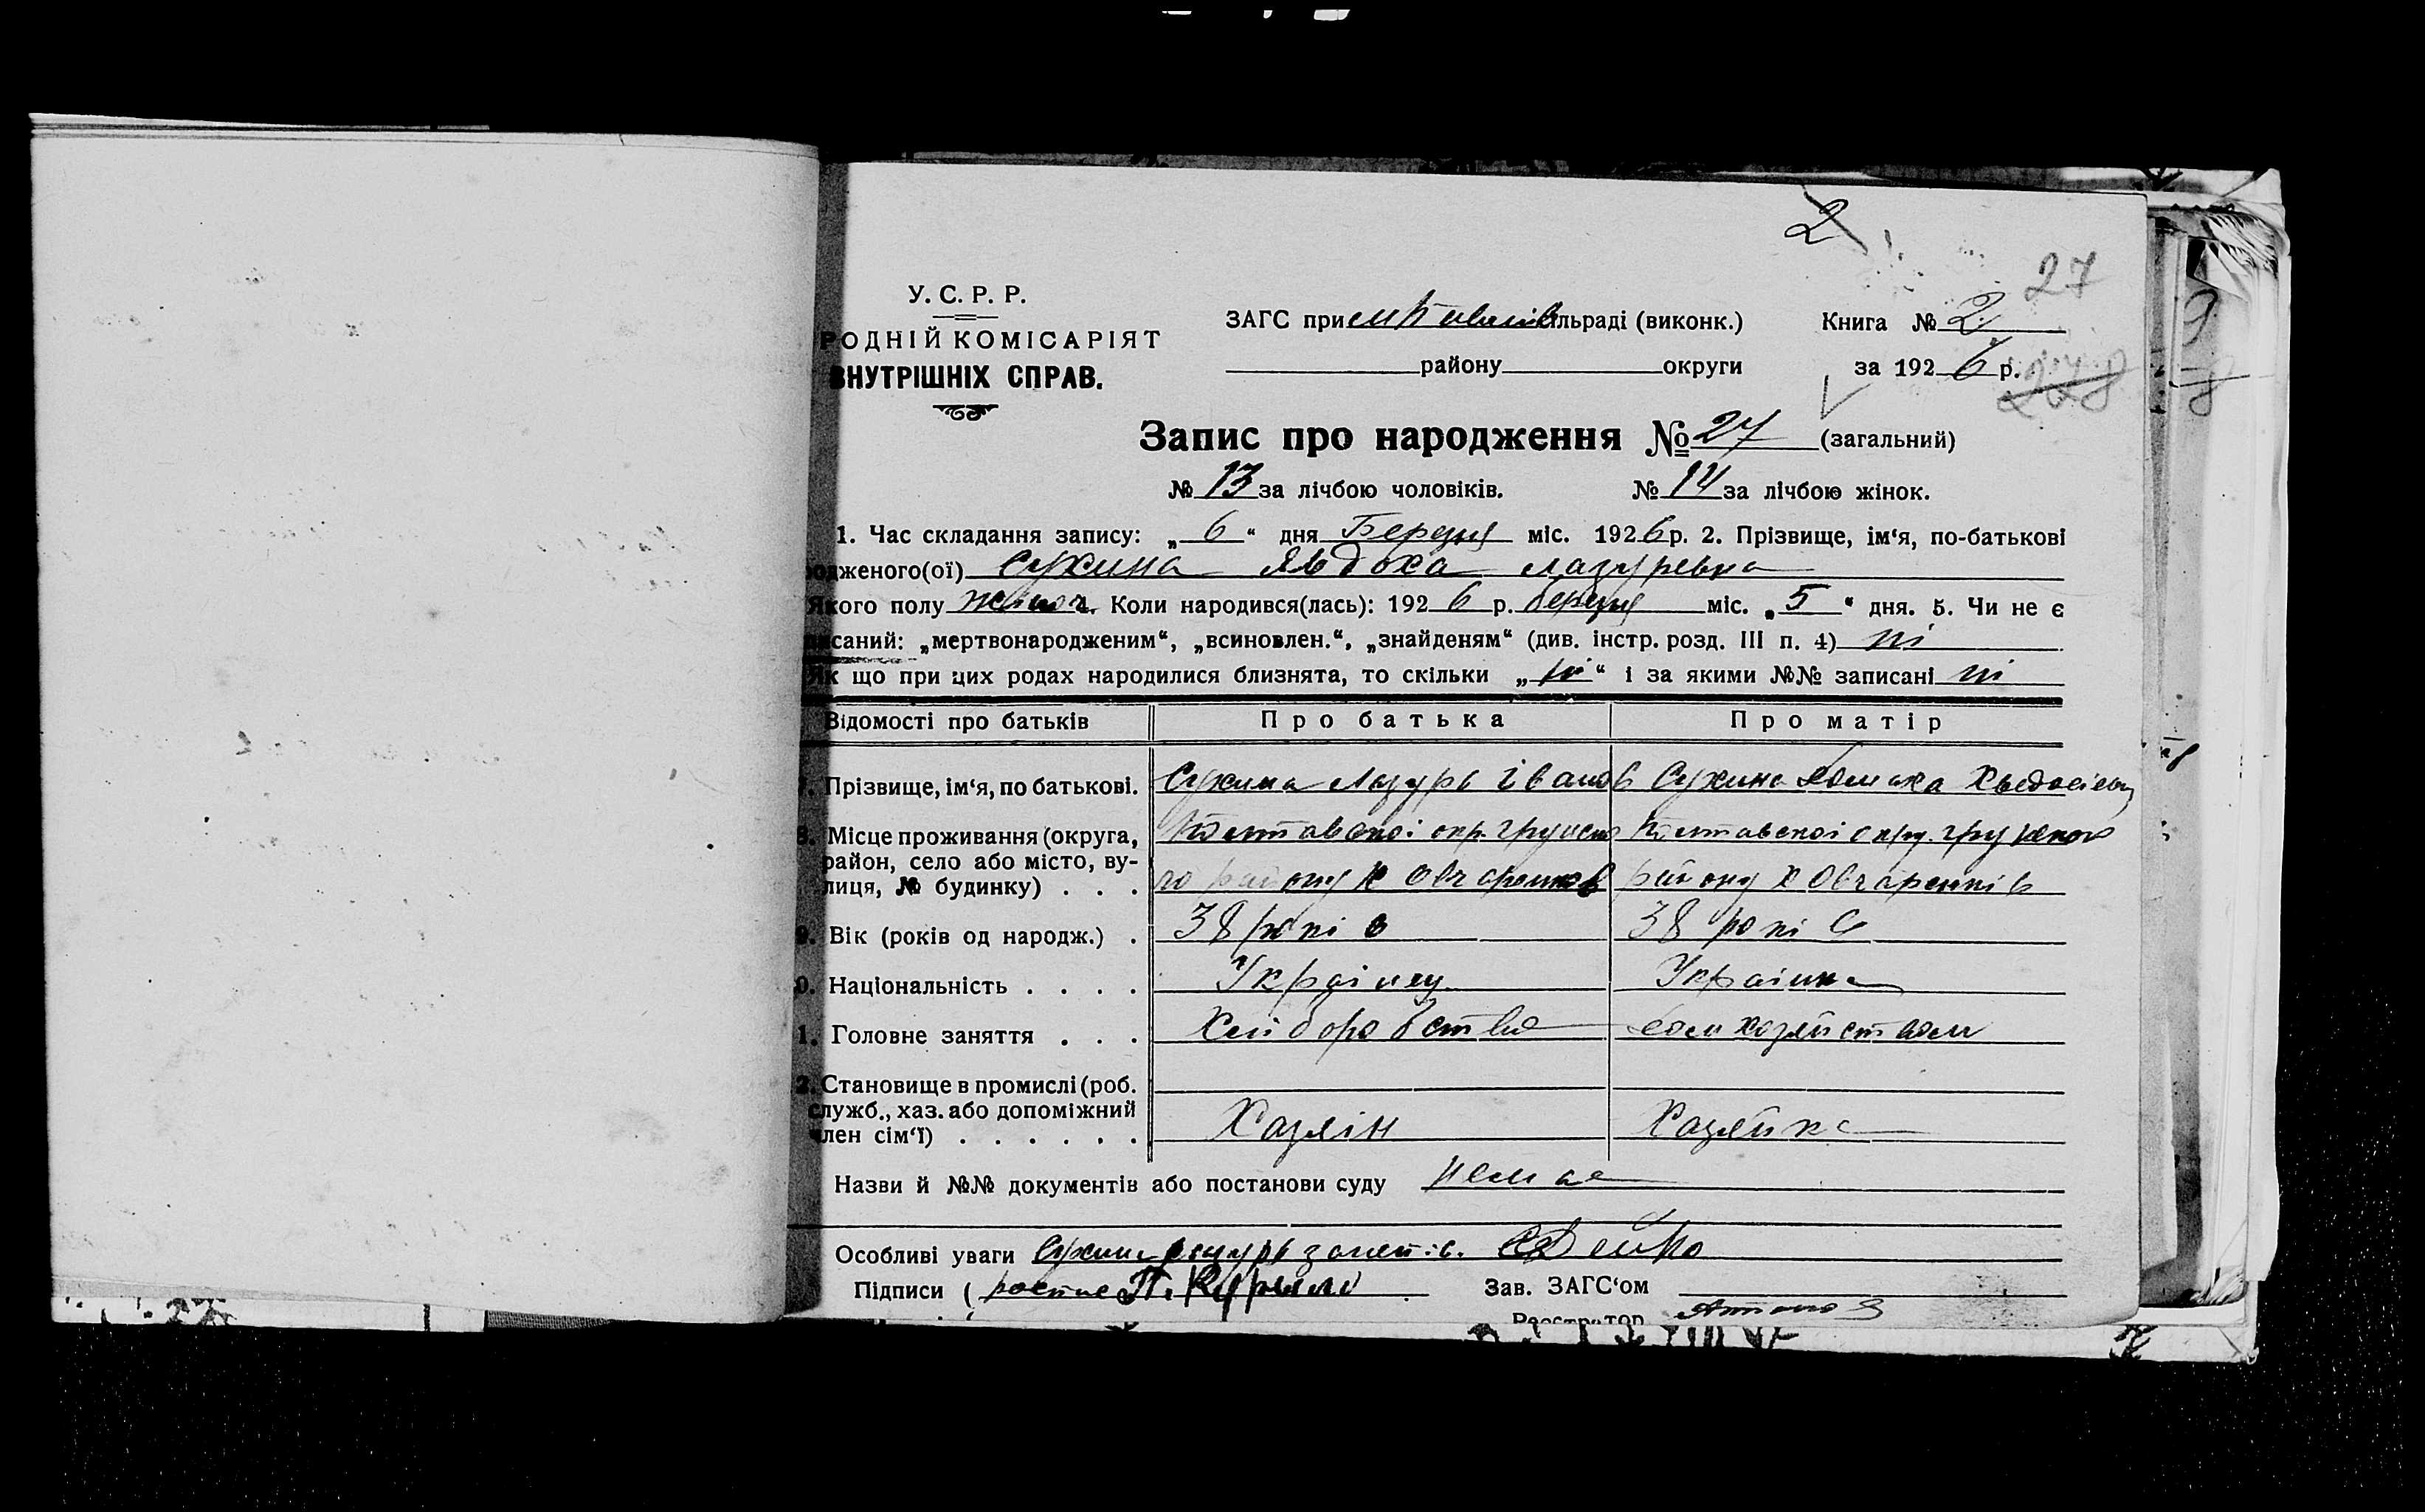 2
27
У. С. Р. Р.
РОДНІЙ КОМІСАРІЯТ
ВНУТРІШНІХ СПРАВ.
ЗАГС при льраді (виконк.)
району округи
Книга № 2
за 1926 р.
278
Запис про народження № 27 (загальний)
№ 13 за лічбою чоловіків. № 14 за лічбою жінок.
1. Час складання запису: „ 6 “ дня Березня міс. 1926 р. 2. Прізвище, ім‘я, по-батькові
одженого(ої) Сухина Явдоха Лазуревна
Якого полу жіноч. Коли народився(лась): 1926 р. березня міс. „ 5 “ дня. 5. Чи не є
писаний: „мертвонародженим“, „всиновлен.“, „знайденям“ (див. інстр. розд. III п. 4) ні
Як що при цих родах народилися близнята, то скільки „ ні “ і за якими №№ записані ні
Відомості про батьків Про батька Про матір
7. Прізвище, ім‘я, по батькові. Сухина Лазурь Іванов Сухина Домаха
8. Місце проживання (округа, Полтавської окр. Грунсько Полтавської окру. Грунского
район, село або місто, ву- го району х Овчаренков району х Овчаренків
лиця, № будинку) . . .
9. Вік (років од народж.) . 38 років 38 років
0. Національність . . . . Українец Українка
1. Головне заняття . . . Хліборобство дом хозяйством
2. Становище в промислі (роб.
служб., хаз. або допоміжний
член сім‘ї) . . . . . . Хазяін Хазяйка
Назви й №№ документів або постанови суду немає
Особливі уваги Сухина Лазурь
Підписи ( Зав. ЗАГС‘ом
Реєстратор